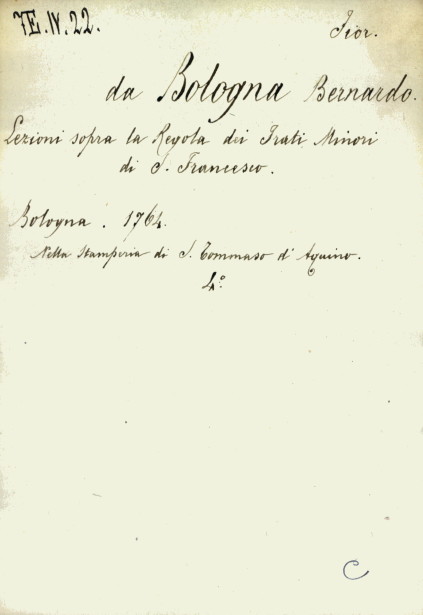 7E.IV.22.
Fior.
da Bologna Bernardo.
Lezioni sopra la Regola dei Frati Minori
di S. Francesco.
Bologna. 1764.
Nella Stamperia di S. Tommaso d'Aquino.
4.º
C